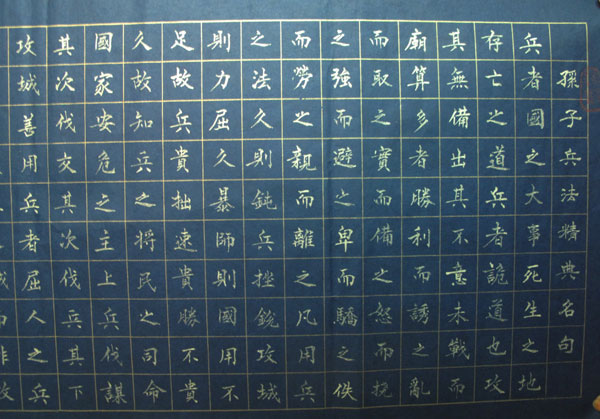 孫子兵法精典名句
兵者國之大事死生之地
存亡之道兵者詭道也攻
其無備出其不意未戰而
廟算多者勝利而誘之亂
而取之實而備之怒而撓
之強而避之卑而驕之佚
而勞之親而離之凡用兵
之法久則鈍兵挫銳攻城
則力屈久暴師則國用不
足故兵貴拙速貴勝不貴
久故知兵之將民之司命
國家安危之主上兵伐謀
其次伐交其次伐兵其下
攻城善用兵者屈人之兵